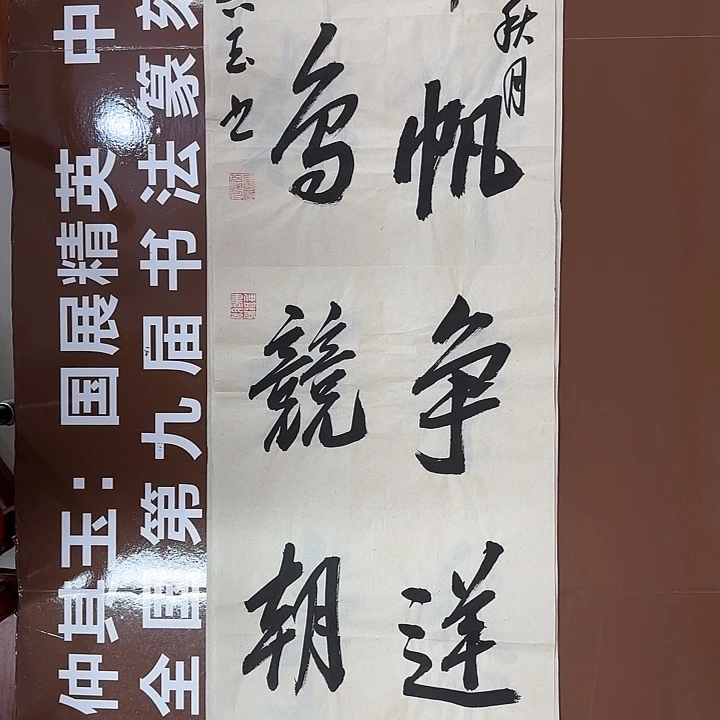 秋月
帆争
鸟競朝
玉书
仲其玉：国展精英 中
全国第九届书法篆刻